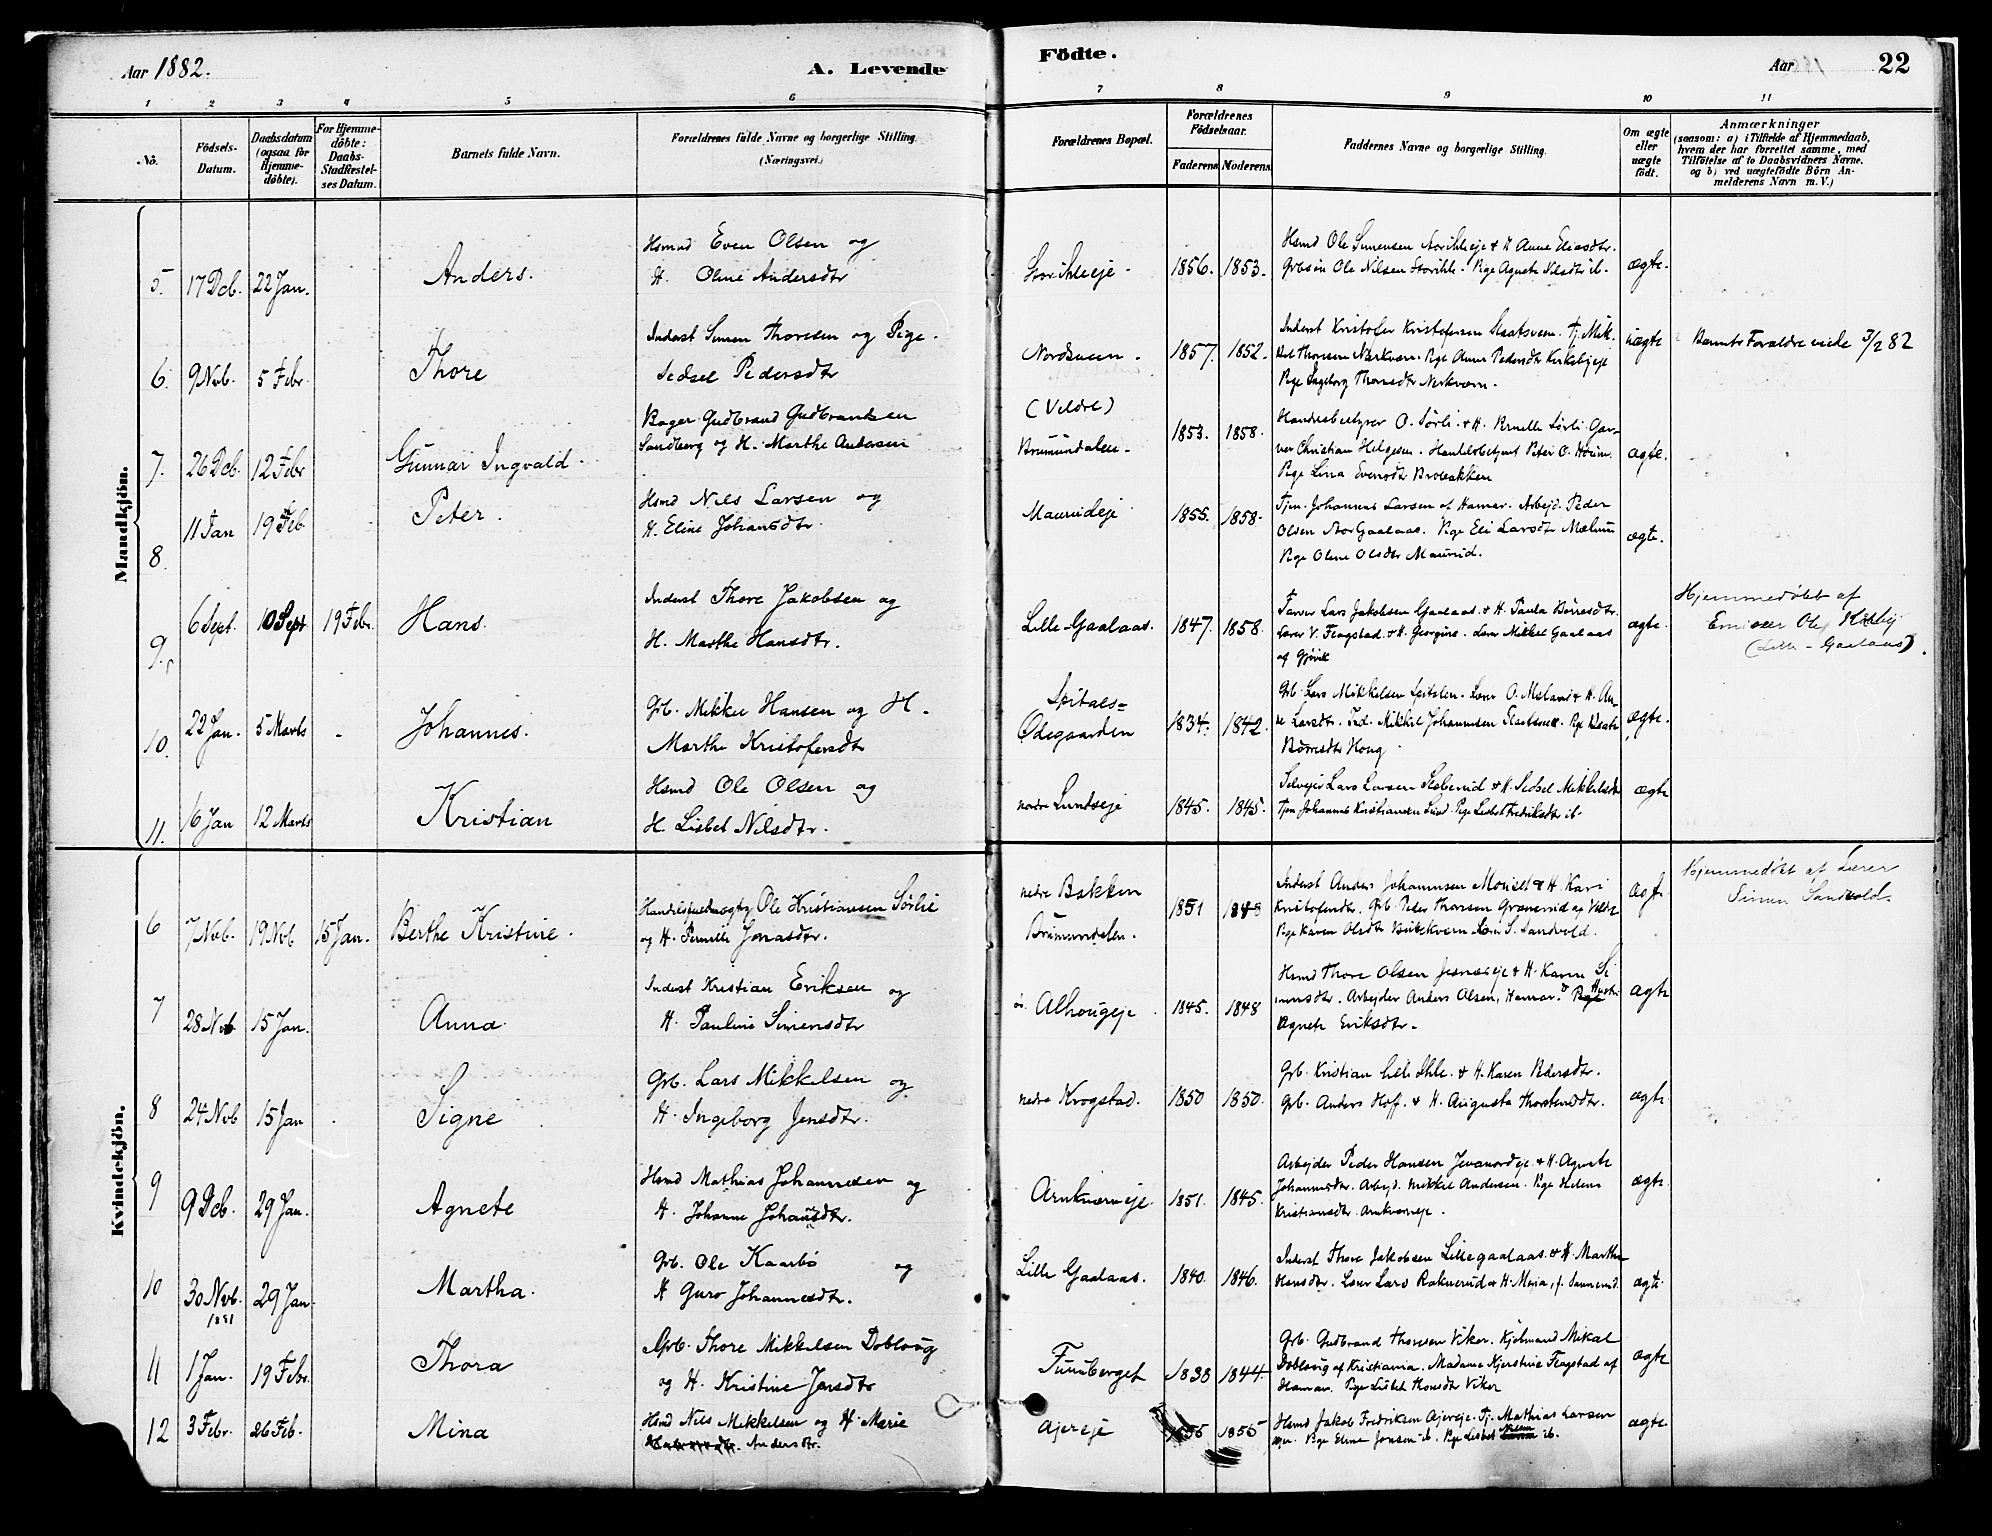 Aar 1882.
A. Levende
Födte.
Aar
22
1 2 3 4 5 6 7 8 9 10 11
No.
Födsels-
Datum.
Daabsdatum
(ogsaa for
Hjemme-
döbte).
For Hjemme-
döbte:
Daabs-
Stadfæstel-
ses Datum.
Barnets fulde Navn.
Forældrenes fulde Navne og borgerlige Stilling.
(Næringsvei.)
Forældrenes Bopæl.
Forældrenes
Födselsaar.
Faderens
Moderens
Faddernes Navne og borgerlige Stilling.
Om ægte
eller
uægte
födt.
Anmærkninger
(saasom: a) i Tilfælde af Hjemmedaab,
hvem der har forrettet samme, med
Tilföielse af to Daabsvidners Navne.
og b) ved uægtefödte Börn An-
melderens Navn m. V.)
Mandkjön.
5. 17 Dcb. 22 Jan. Anders.
Hsmd Even Olsen og
H. Oline Andersdtr
Storihleeje. 1856. 1853.
Hsmd Ole Simensen Storihleeje & H. Anne Eliasdtr.
Grbsøn Ole Nilsen Storihle. Pige Agnete Nilsdtr ib.
ægte.
6. 9 Nvb. 5 Febr. Thore
Inderst Simen Thoresen og Pige
Sedsel Pedersdtr
Nordsveen. 1857. 1852.
Inderst Kristofer Kristofersen Staatsveen. Tj. Mik-
kel Thoresen Nerkvern. Pige Anne Pedersdtr Kirkebyeje
Pige Ingeborg Thoresdtr Nerkvern.
uægte
Barnets Forældre viede 3/2 82
7. 26 Dcb. 12 Febr Gunnar Ingvald.
Bager Gudbrand Gudbrandsen
Sandberg og H. Marthe Andersen
(Veldre)
Brumundalen. 1853. 1858.
Handelsbestyrer O. Sørli. & H. Pernille Sørli. Gar-
ver Christian Helgesen. Handelsbetjent Peter O. Hoium.
Pige Lina Evensdtr Brobakken
ægte.
8. 11 Jan 19 Feb Peter.
Hsmd Nils Larsen og
H. Eline Johansdtr.
Maurudeje 1855. 1858.
Tjen. Johannes Larsen af Hamar. Arbejd. Peder
Olsen StorGaalaas. Pige Eli Larsdtr Mælum
Pige Oline Olsdtr Maurud.
ægte.
9. 6 Sept. 10 Sept 19 Febr. Hans.
Inderst Thore Jakobsen og
H. Marthe Hansdtr.
Lille-Gaalaas. 1847. 1858.
Farver Lars Jakobsen Gaalaas. & H. Paula Børresdtr.
Lærer V. Flagstad. & H. Georgine. Lærer Mikkel Gaalaas
af Gjøvik
ægte.
Hjemmedøbt af
Ole
(Lille-Gaalaas).
10. 22 Jan. 5 Marts - Johannes.
Grb. Mikkel Hansen og H.
Marthe Kristofersdtr
Spitals=
Ødegaarden 1834. 1842.
Grb. Lars Mikkelsen Spitalen. Lærer O. Meland & H. An-
ne Larsdtr. Ind. Mikkel Johannesen Staatsveen. Pige
Børresdtr Houg.
ægte.
11. 16 Jan 12 Marts Kristian
Hsmd Ole Olsen og
H. Lisbet Nilsdtr.
nordre Lundseje 1845. 1845.
Selvejer Lars Larsen Stæberud & H. Sedsel Mikkelsdtr
Tjen Johannes Kristiansen Lund. Pige Lisbet Fredriksdtr ib.
ægte
Kvindekjön.
6 7 Nvb. 19 Nvb 15 Jan. Berthe Kristine.
Handelsfuldmægtig Ole Kristiansen Sørlie
og H. Pernille Jonasdtr.
nedre Bakken
Brumundalen. 1851 1848
Inderst Anders Johannesen Monset & H. Kari
Kristofersdtr. Grb. Peder Thorsen Grønerud og Veldre
Pige Karen Olsdtr. Lærer S. Sandvold.
ægte
Hjemmedøbt af Lærer
Simen Sandvold.
7 28 Nvb 15 Jan. Anna.
Inderst Kristian Eriksen og
H. Pauline Simensdtr
ø. Alhougeje. 1845. 1848
Hsmd Thore Olsen Jesneseje & H. Karen Si
mensdtr. Arbejder Anders Olsen, Hamar. Hustr.
Agnete Eriksdtr.
ægte
8 24 Nvb 15 Jan Signe
Grb. Lars Mikkelsen og
H. Ingeborg Jensdtr.
nedre Krogstad. 1850 1850.
Grb. Kristian Lille Ihle. & H. Karen Pedersdtr.
Grb. Anders Hof. & H. Augusta Thorstensdtr.
ægte
9 9 Dcb. 29 Jan. Agnete
Hsmd Mathias Johannesen og
H. Johanne Johansdtr.
Arnkværneje. 1851. 1845.
Arbejder Peder Hansen Jevanordeje & H. Agnete
Johannesdtr. Arbejd. Mikkel Andersen. Pige Helene
Kristiansdtr. Arnkværneje.
ægte
10 30 Nvb. 1881 29 Jan. Martha.
Grb. Ole Kaarbø og
H Guro Johannesdtr.
Lille Gaalaas. 1840. 1846.
Inderst Thore Jakobsen Lillegaalaas. & H. Marthe
Hansdtr. Lærer Lars Raknerud & H. Maria, f. Sannerud.
ægte
11 1 Jan. 19 Febr. Thora
Grb. Thore Mikkelsen Doblovg
og H. Kristine Jensdtr
Furuberget 1838 1844
Grb. Gudbrand Thoresen Viker. Kjøbmand Mikal
Doblovg af Kristiania. Madame Kjerstine Flagstad af
Hamar. Pige Lisbet Thoresdtr Viker
ægte
12 3 Febr. 26 Feb. Mina
Hsmd Nils Mikkelsen og H. Marie
Andersdtr.
Ajereje 1855 1855
Hsmd Jakob Fredriksen Ajereje. Tj. Mathias Larsen
Ajer. Pige Eline Jonsen ib. Pige Lisbet ib.
ægte